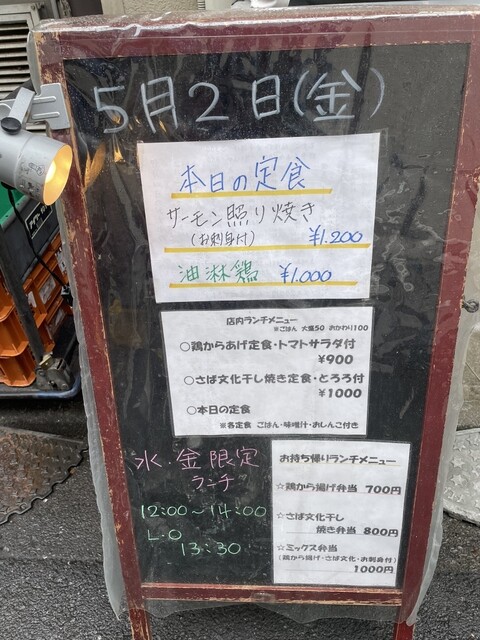 5月2日(金)
本日の定食
サーモン照り焼き
(お刺身付) ¥1.200
油淋鶏 ¥1.000
店内ランチメニュー
※ごはん 大盛50 おかわり100
○鶏からあげ定食・トマトサラダ付
¥900
○さば文化干し焼き定食・とろろ付
¥1000
○本日の定食
※各定食 ごはん・味噌汁・おしんこ付き
水・金限定
ランチ
12:00~14:00
L.O
13:30
お持ち帰りランチメニュー
☆鶏から揚げ弁当 700円
☆さば文化干し
焼き弁当 800円
☆ミックス弁当
(鶏から揚げ・さば文化・お刺身付)
1000円